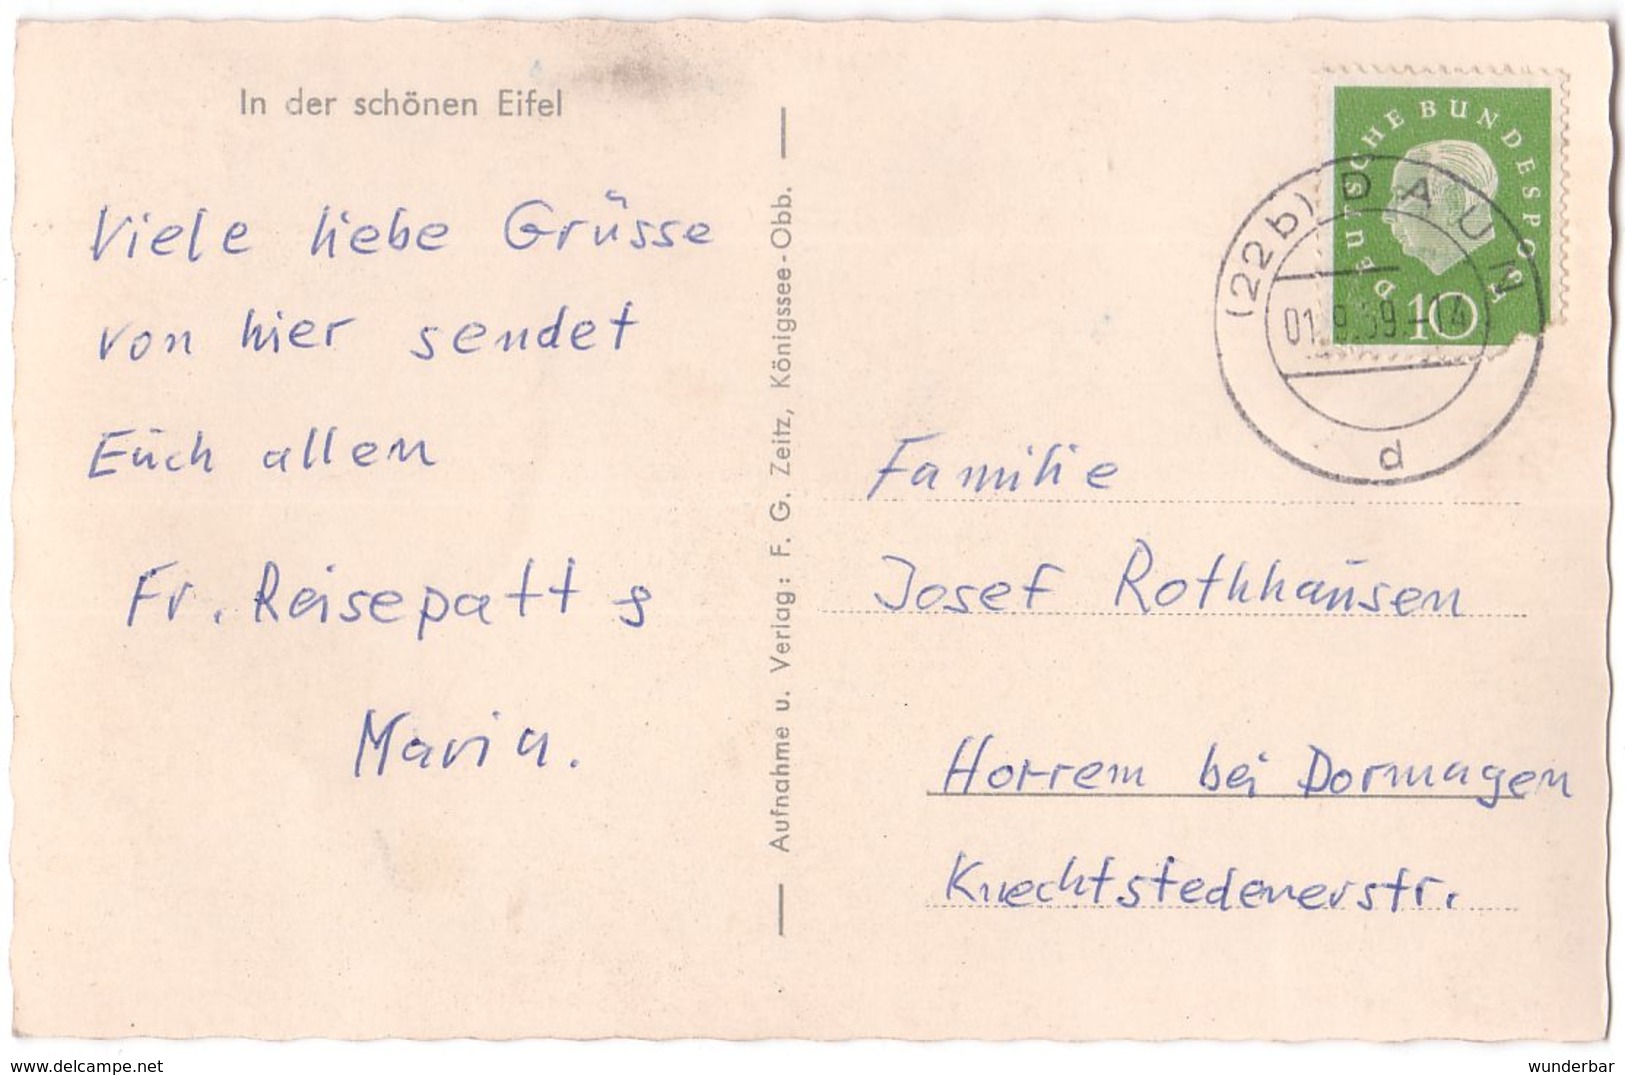 In der schönen Eifel
Viele liebe Grüsse
von hier sendet
Euch allen
Fr. Reisepatt &
Maria.
Aufnahme u. Verlag: F. G. Zeitz, Königssee-Obb.
DEUTSCHE BUNDESPOST
10
(22b) DAUN
01.9.59.-14
d
Familie
Josef Rothhausen
Horrem bei Dormagen
Knechtstedenerstr.
delcampe.net
wunderbar